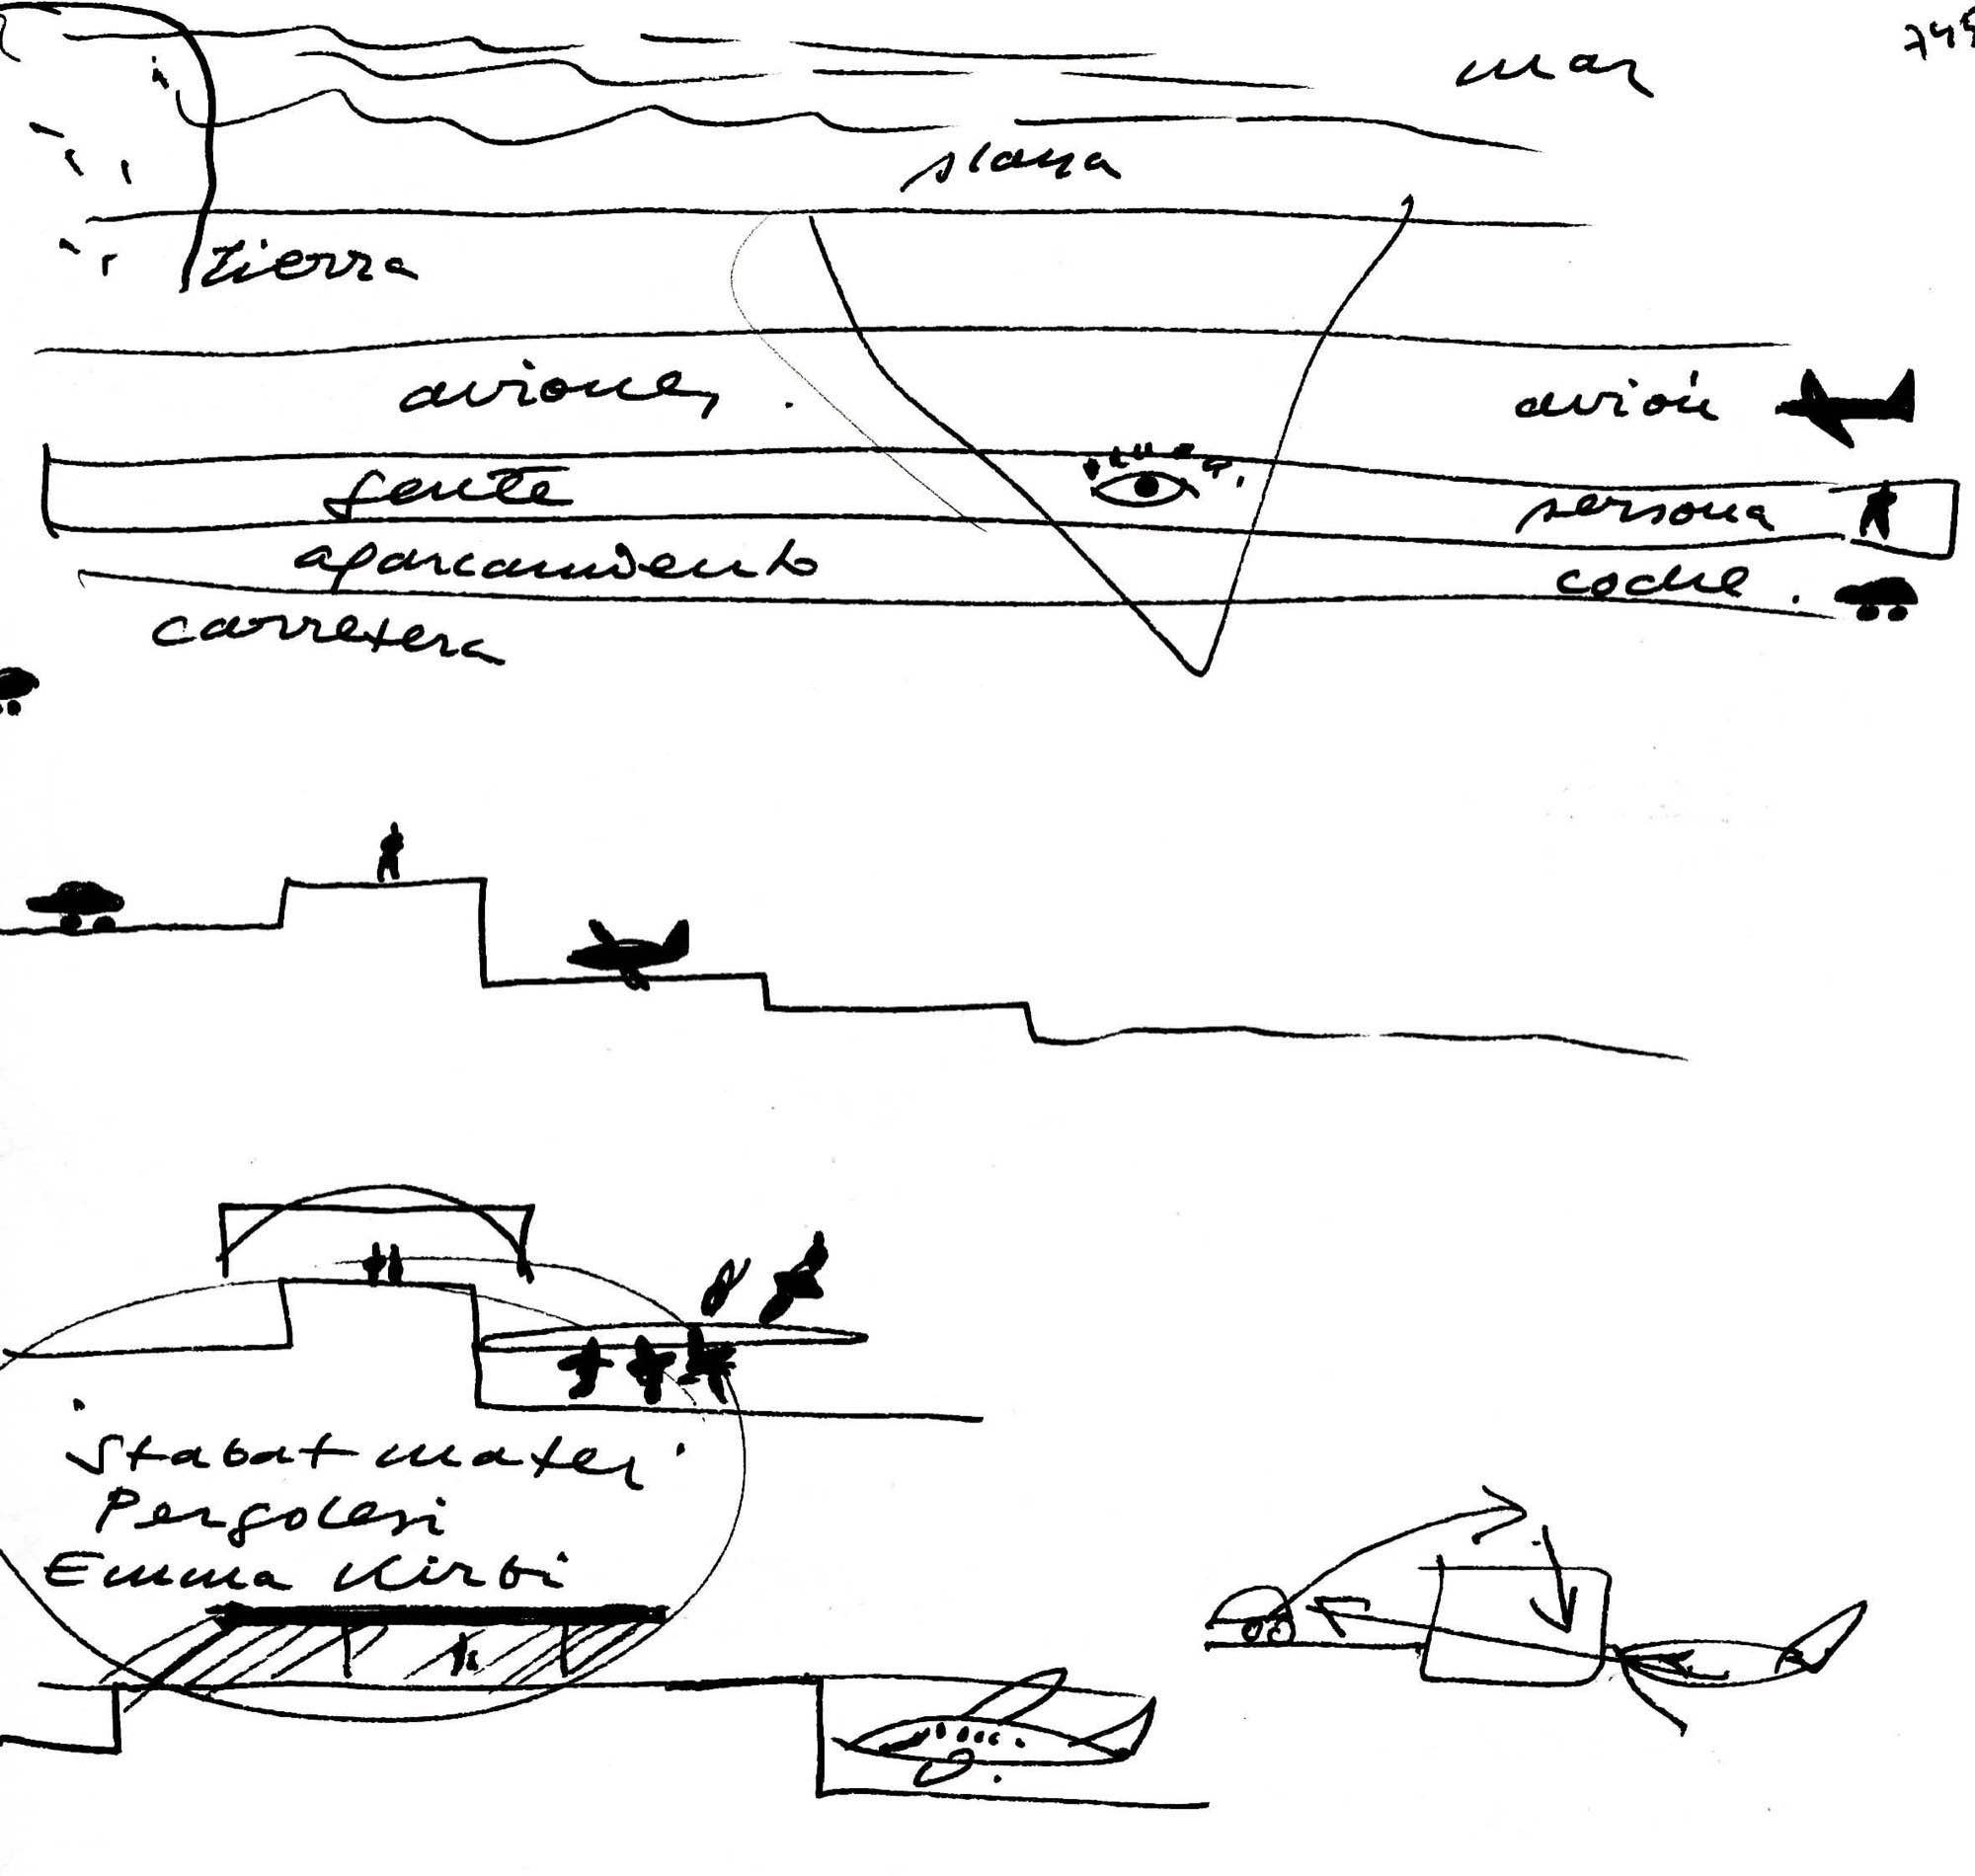 mar
playa
tierra
aviones
avión
gente
persona
aparcamiento
coche
carretera
Stabat mater
Pergolesi
Emma Kirbi